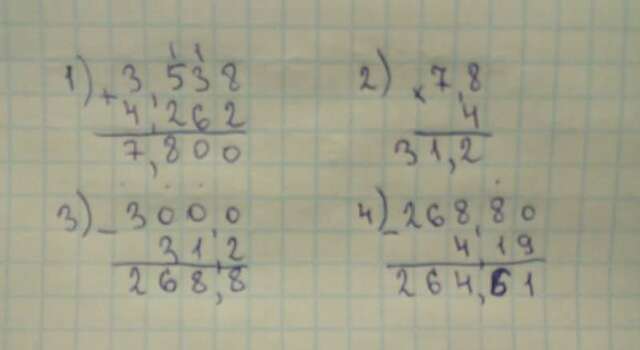 1) + 3,538
4,262
7,800
2) × 7,8
4
31,2
3) - 300,0
31,2
268,8
4) - 268,80
4,19
264,61